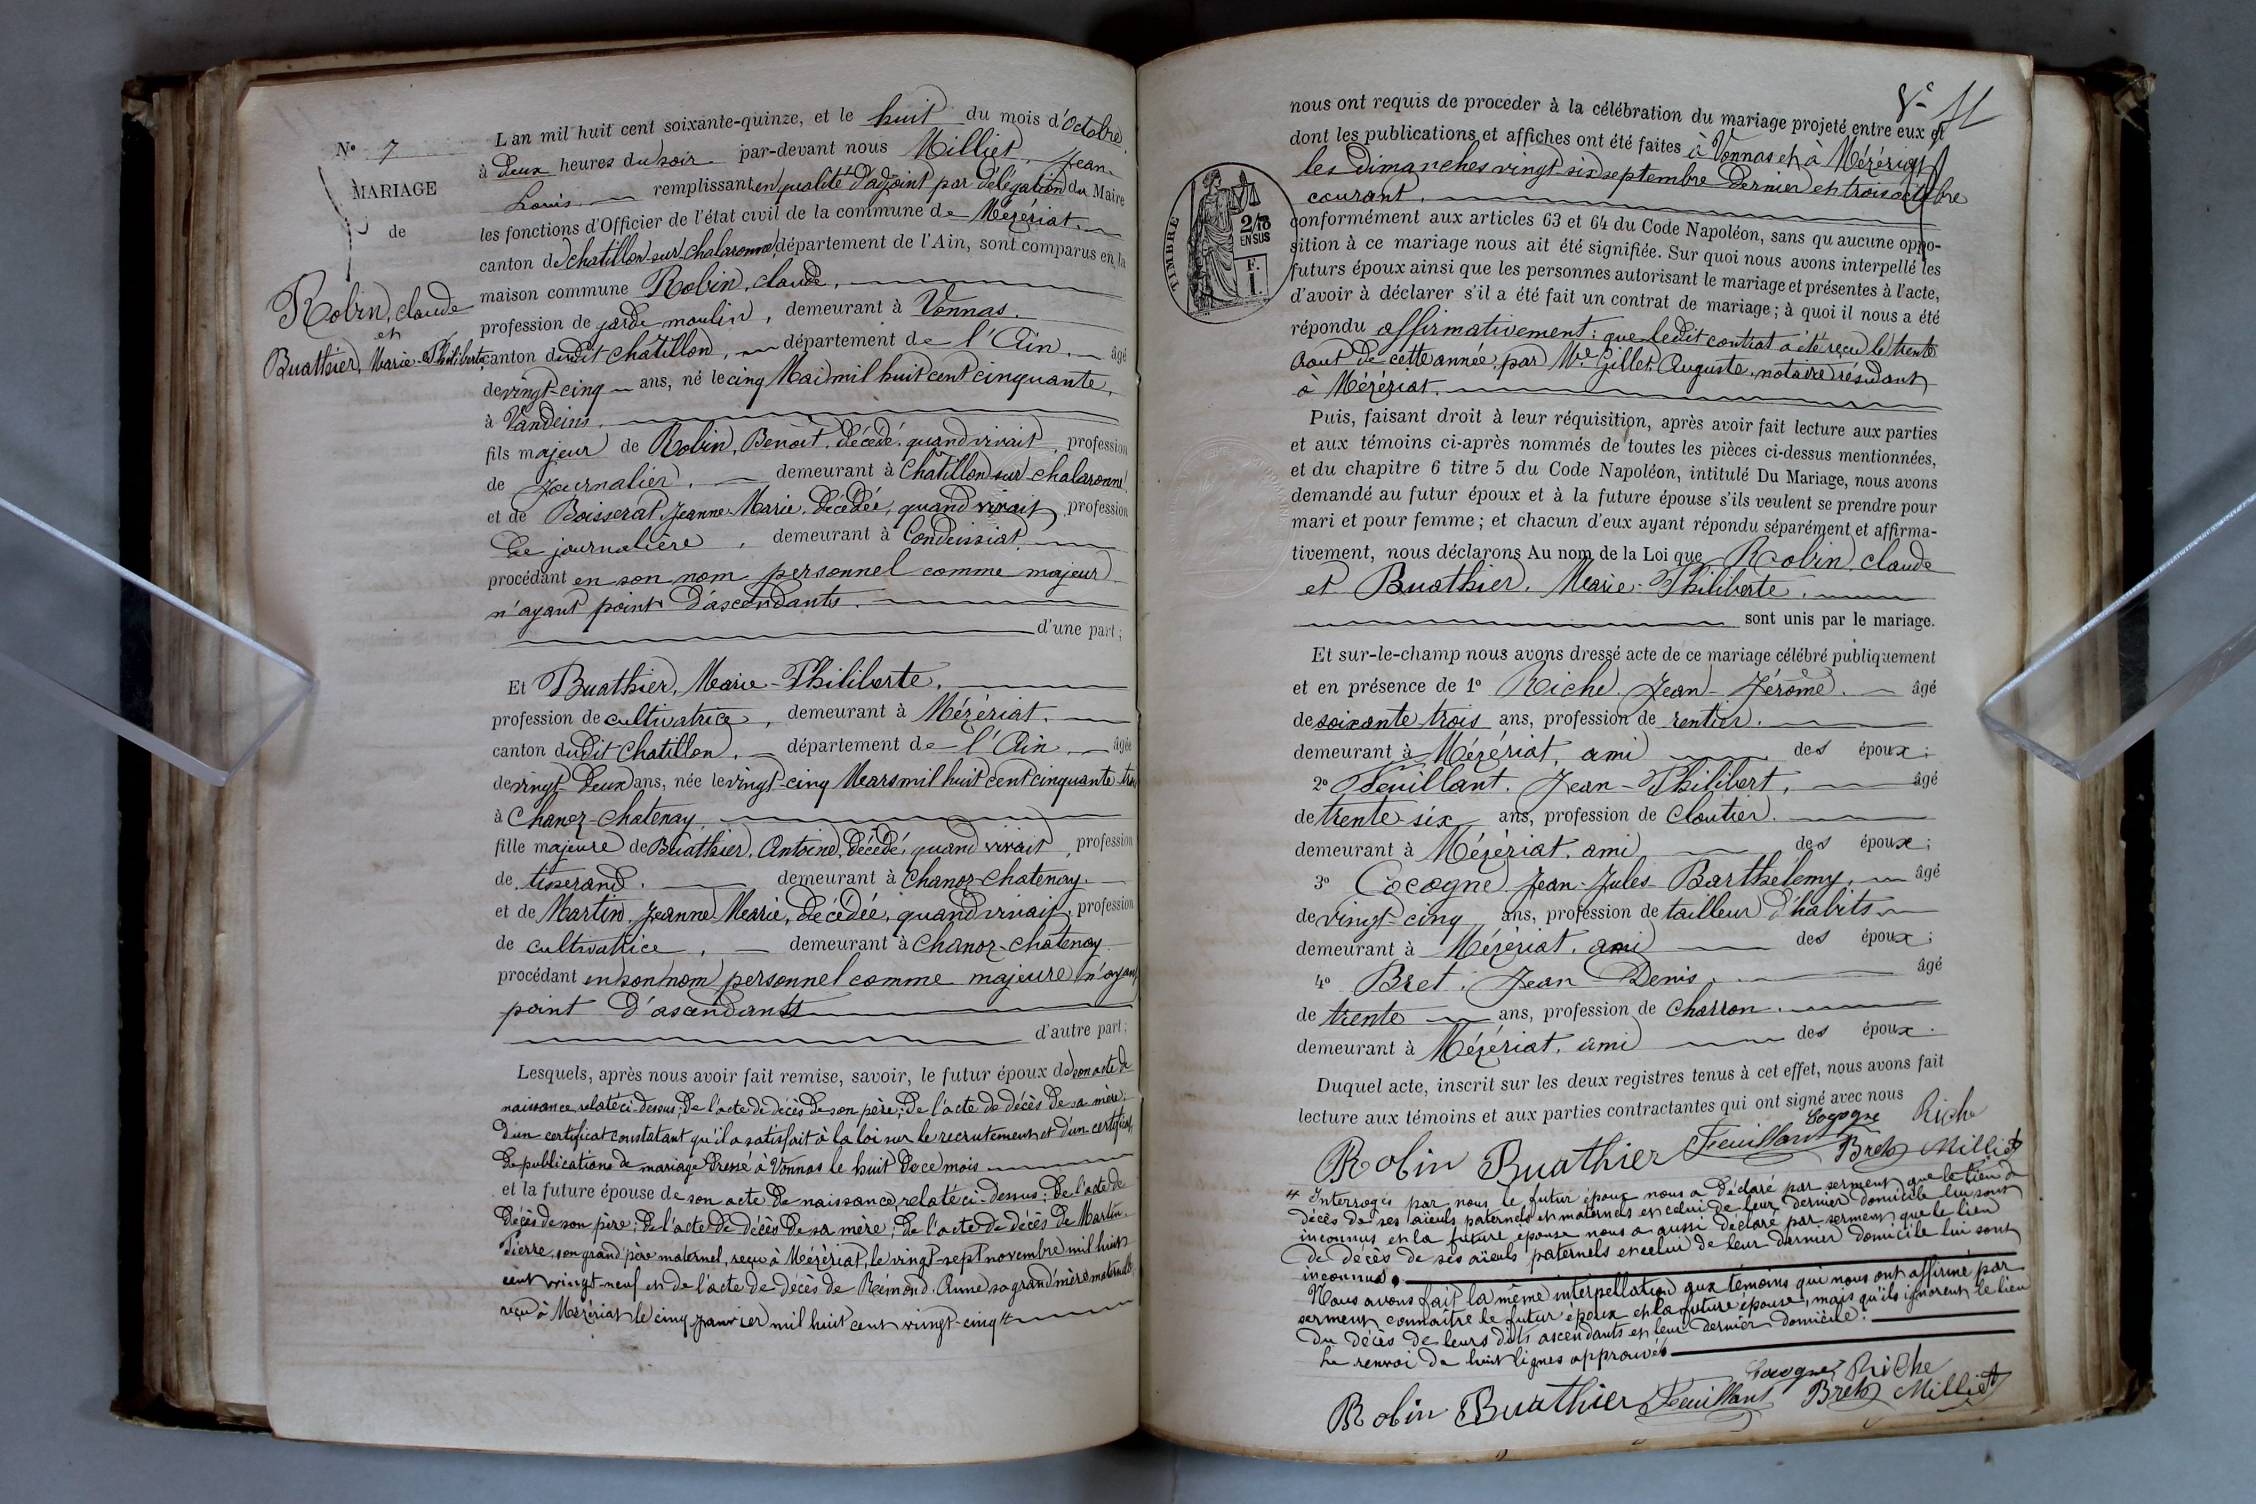 N° 7
MARIAGE
de
Robin, claude
et
Buathier, Marie-Philiberte
L'an mil huit cent soixante-quinze, et le huit du mois d'Octobre
à deux heures du soir par-devant nous Milliet, Jean-
Louis remplissant en qualité d'adjoint par délégation du Maire
les fonctions d'Officier de l'état civil de la commune de Mézériat
canton de chatillon-sur-chalaronne, département de l'Ain, sont comparus en la
maison commune Robin, claude,
profession de garde moulin, demeurant à Vonnas.
canton dudit châtillon, département de l'Ain, âgé
de vingt-cinq ans, né le cinq Mai mil huit cent cinquante,
à Vandeins.
fils majeur de Robin, Benoit, décédé, quand vivait, profession
de Journalier, demeurant à Chatillon-sur-chalaronne,
et de Boisserat, Jeanne-Marie, décédée, quand vivait, profession
de journalière, demeurant à Condeissiat
procédant en son nom personnel comme majeur
n'ayant point d'ascendants.
d'une part;
Et Buathier, Marie-Philiberte,
profession de cultivatrice, demeurant à Mézériat.
canton dudit chatillon, département de l'Ain, âgée
de vingt-deux ans, née le vingt-cinq Mars mil huit cent cinquante-trois
à Chanoz-chatenay
fille majeure de Buathier, Antoine, décédé, quand vivait, profession
de tisserand. demeurant à Chanoz-chatenay.
et de Martin, Jeanne-Marie, décédée, quand vivait, profession
de cultivatrice, demeurant à chanoz-chatenay
procédant en son nom personnel comme majeure n'ayant
point d'ascendants
d'autre part;
Lesquels, après nous avoir fait remise, savoir, le futur époux de son acte de
naissance relaté ci-dessus; de l'acte de décès de son père; de l'acte de décès de sa mère;
d'un certificat constatant qu'il a satisfait à la loi sur le recrutement et d'un certificat
de publications de mariage dressé à Vonnas le huit de ce mois
et la future épouse de son acte de naissance, relaté ci-dessus; de l'acte de
décès de son père; de l'acte de décès de sa mère; de l'acte de décès de Martin,
Pierre, son grand père maternel, reçu à Mézériat, le vingt-sept novembre mil huit
cent vingt-neuf et de l'acte de décès de Rémond, Anne, sa grand'mère maternelle,
reçu à Mézériat le cinq janvier mil huit cent vingt-cinq #
nous ont requis de procéder à la célébration du mariage projeté entre eux et
dont les publications et affiches ont été faites à Vonnas et à Mézériat
les dimanches vingt-six septembre dernier et trois octobre
courant.
TIMBRE
2/10
EN SUS
F.
1.
conformément aux articles 63 et 64 du Code Napoléon, sans qu'aucune oppo-
sition à ce mariage nous ait été signifiée. Sur quoi nous avons interpellé les
futurs époux ainsi que les personnes autorisant le mariage et présentes à l'acte,
d'avoir à déclarer s'il a été fait un contrat de mariage; à quoi il nous a été
répondu affirmativement: que ledit contrat a été reçu le trente
août de cette année, par Me Gillet, Auguste, notaire résidant
à Mézériat.
Puis, faisant droit à leur réquisition, après avoir fait lecture aux parties
et aux témoins ci-après nommés de toutes les pièces ci-dessus mentionnées,
et du chapitre 6 titre 5 du Code Napoléon, intitulé Du Mariage, nous avons
demandé au futur époux et à la future épouse s'ils veulent se prendre pour
mari et pour femme; et chacun d'eux ayant répondu séparément et affirma-
tivement, nous déclarons Au nom de la Loi que Robin, claude
et Buathier, Marie-Philiberte,
sont unis par le mariage.
Et sur-le-champ nous avons dressé acte de ce mariage célébré publiquement
et en présence de 1° Riche, Jean-Jérôme. âgé
de soixante trois ans, profession de rentier.
demeurant à Mézériat, ami des époux;
2° Feuillant, Jean-Philibert, âgé
de trente six ans, profession de Cloutier.
demeurant à Mézériat, ami des époux;
3° Cocogne, Jean-Jules-Barthélemy, âgé
de vingt-cinq ans, profession de tailleur d'habits
demeurant à Mézériat, ami des époux;
4° Bret, Jean Denis, âgé
de trente ans, profession de Charron.
demeurant à Mézériat, ami des époux.
Duquel acte, inscrit sur les deux registres tenus à cet effet, nous avons fait
lecture aux témoins et aux parties contractantes qui ont signé avec nous
Cocogne Riche
Robin Buathier Feuillant Bret Milliet
# Interrogés par nous le futur époux nous a déclaré par serment que le lieu du
décès de ses aïeuls paternels et maternels et celui de leur dernier domicile lui sont
inconnus et la future épouse nous a aussi déclaré par serment que le lieu
de décès de ses aïeuls paternels et celui de leur dernier domicile lui sont
inconnus.
Nous avons fait la même interpellation aux témoins qui nous ont affirmé par
serment connaître le futur époux et la future épouse, mais qu'ils ignorent le lieu
du décès de leurs dits ascendants et leur dernier domicile.
Le renvoi de huit lignes approuvés
Cocogne Riche
Robin Buathier Feuillant Bret Milliet